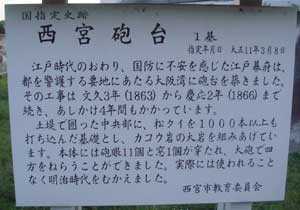 国指定史跡
西宮砲台 1基
指定年月日 大正11年3月8日
江戸時代のおわり、国防に不安を感じた江戸幕府は、
都を警護する要地にあたる大阪湾に砲台を築きました。
その工事は 文久3年(1863)から 慶応2年(1866)まで
続き、あしかけ4年間もかかっています。
土堤で囲った中央部に、松クイを1000本以上も
打ち込んだ基礎とし、カコウ岩の大岩を組みあげてい
ます。本体には砲眼11個と窓1個が穿たれ、大砲で四
方をねらうことができました。実際には使われること
なく明治時代をむかえました。
西宮市教育委員会